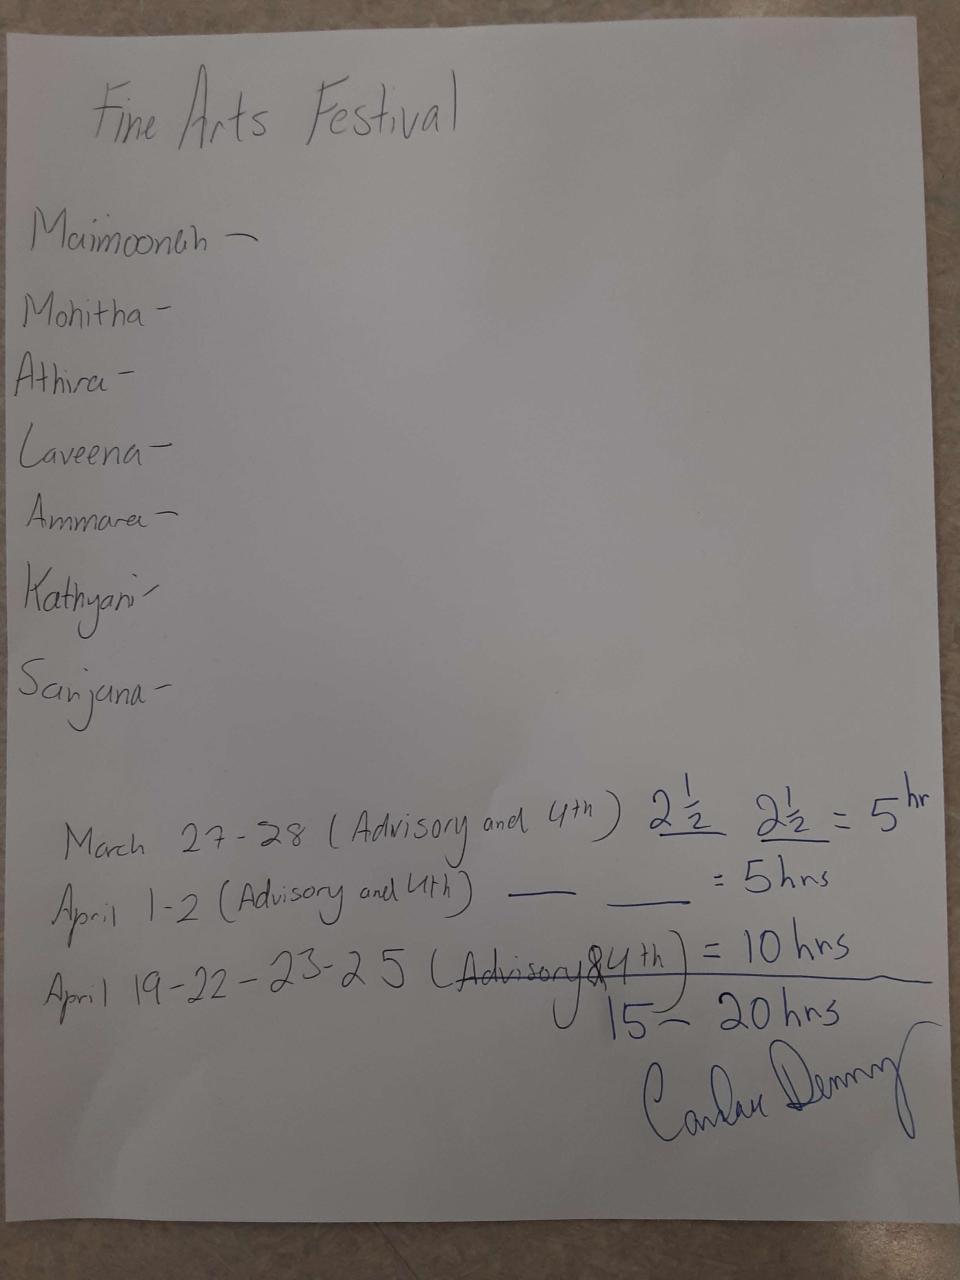 Fine Arts Festival
Maimoonah -
Mohitha -
Athira -
Laveena -
Ammara -
Kathyani -
Sanjana -
March 27-28 (Advisory and 4th) 2 1/2 2 1/2 = 5 hr
April 1-2 (Advisory and 4th) ___ ___ = 5 hrs
April 19-22-23-25 (Advisory & 4th) = 10 hrs
15 - 20 hrs
Denny